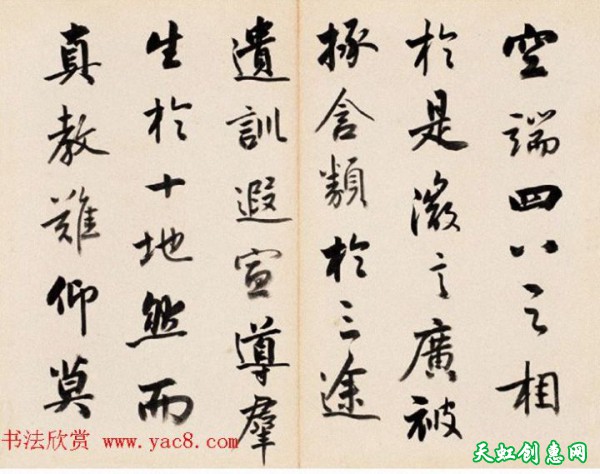 空端四八之相
於是微言廣被
拯含類於三途
遺訓遐宣導羣
生於十地然而
真教難仰莫
书法欣赏 www.yac8.com
天虹创惠网